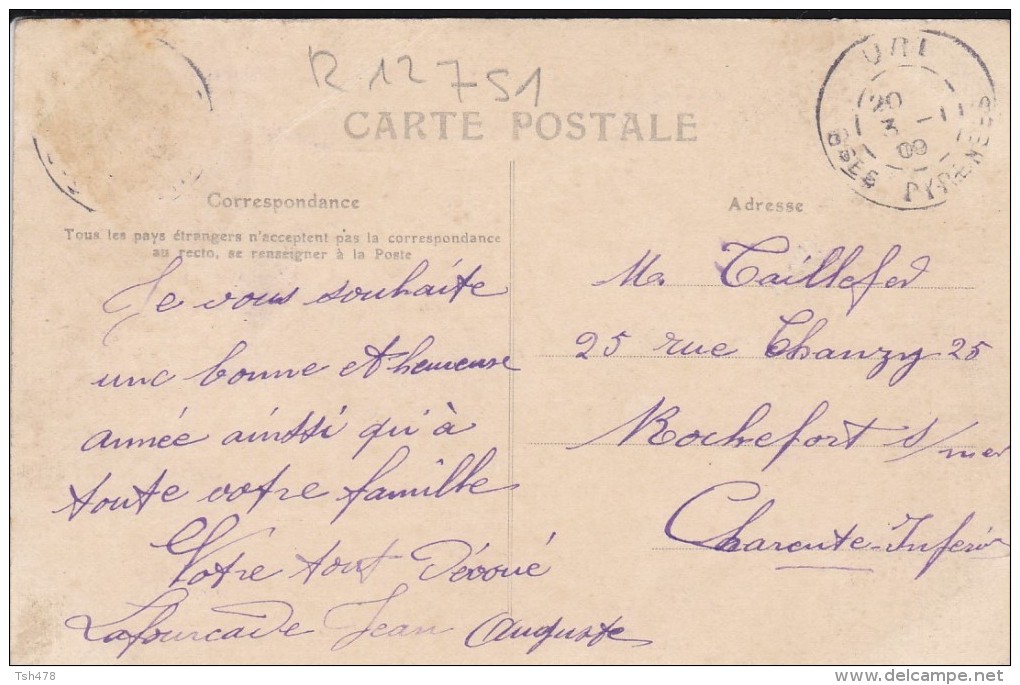 R 12751
CARTE POSTALE
URT
20
3 -1
09
BSES PYRENEES
Correspondance
Tous les pays étrangers n'acceptent pas la correspondance
au recto, se renseigner à la Poste
Je vous souhaite
une bonne et heureuse
année ainssi qu'à
toute votre famille
Votre tout Dévoué
Lafourcade Jean Auguste
Adresse
Mr Taillefed
25 rue Chanzy 25
Rochefort s/mer
Charente-Inférie
Tsh478
delcampe.net